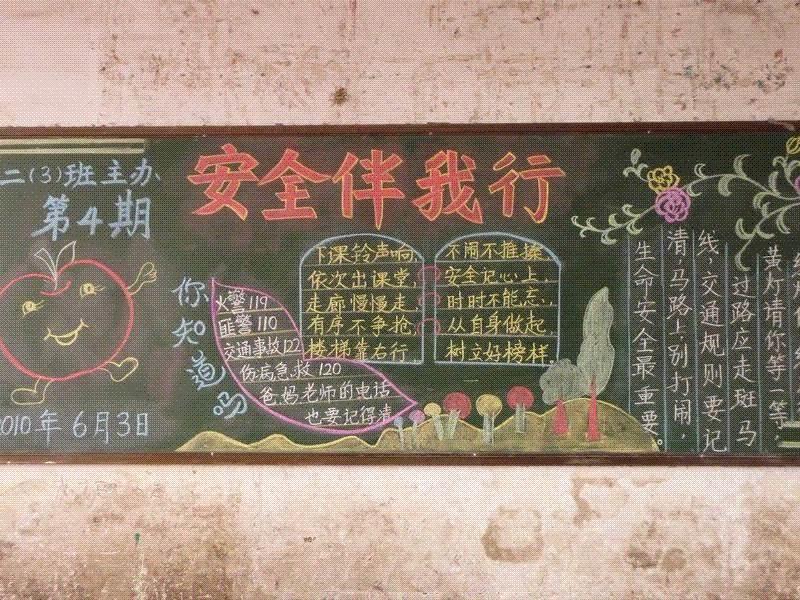 二(3)班主办
第4期
2010年6月3日
安全伴我行
你知道吗
火警119
匪警110
交通事故122
伤病急救120
爸妈老师的电话
也要记得清
下课铃声响
依次出课堂,
走廊慢慢走
有序不争抢,
楼梯靠右行
不闹不推搡
安全记心上,
时时不能忘,
从自身做起
树立好榜样
黄灯请你等一等,
过路应走斑马
线,交通规则要记
清,马路上别打闹,
生命安全最重要。